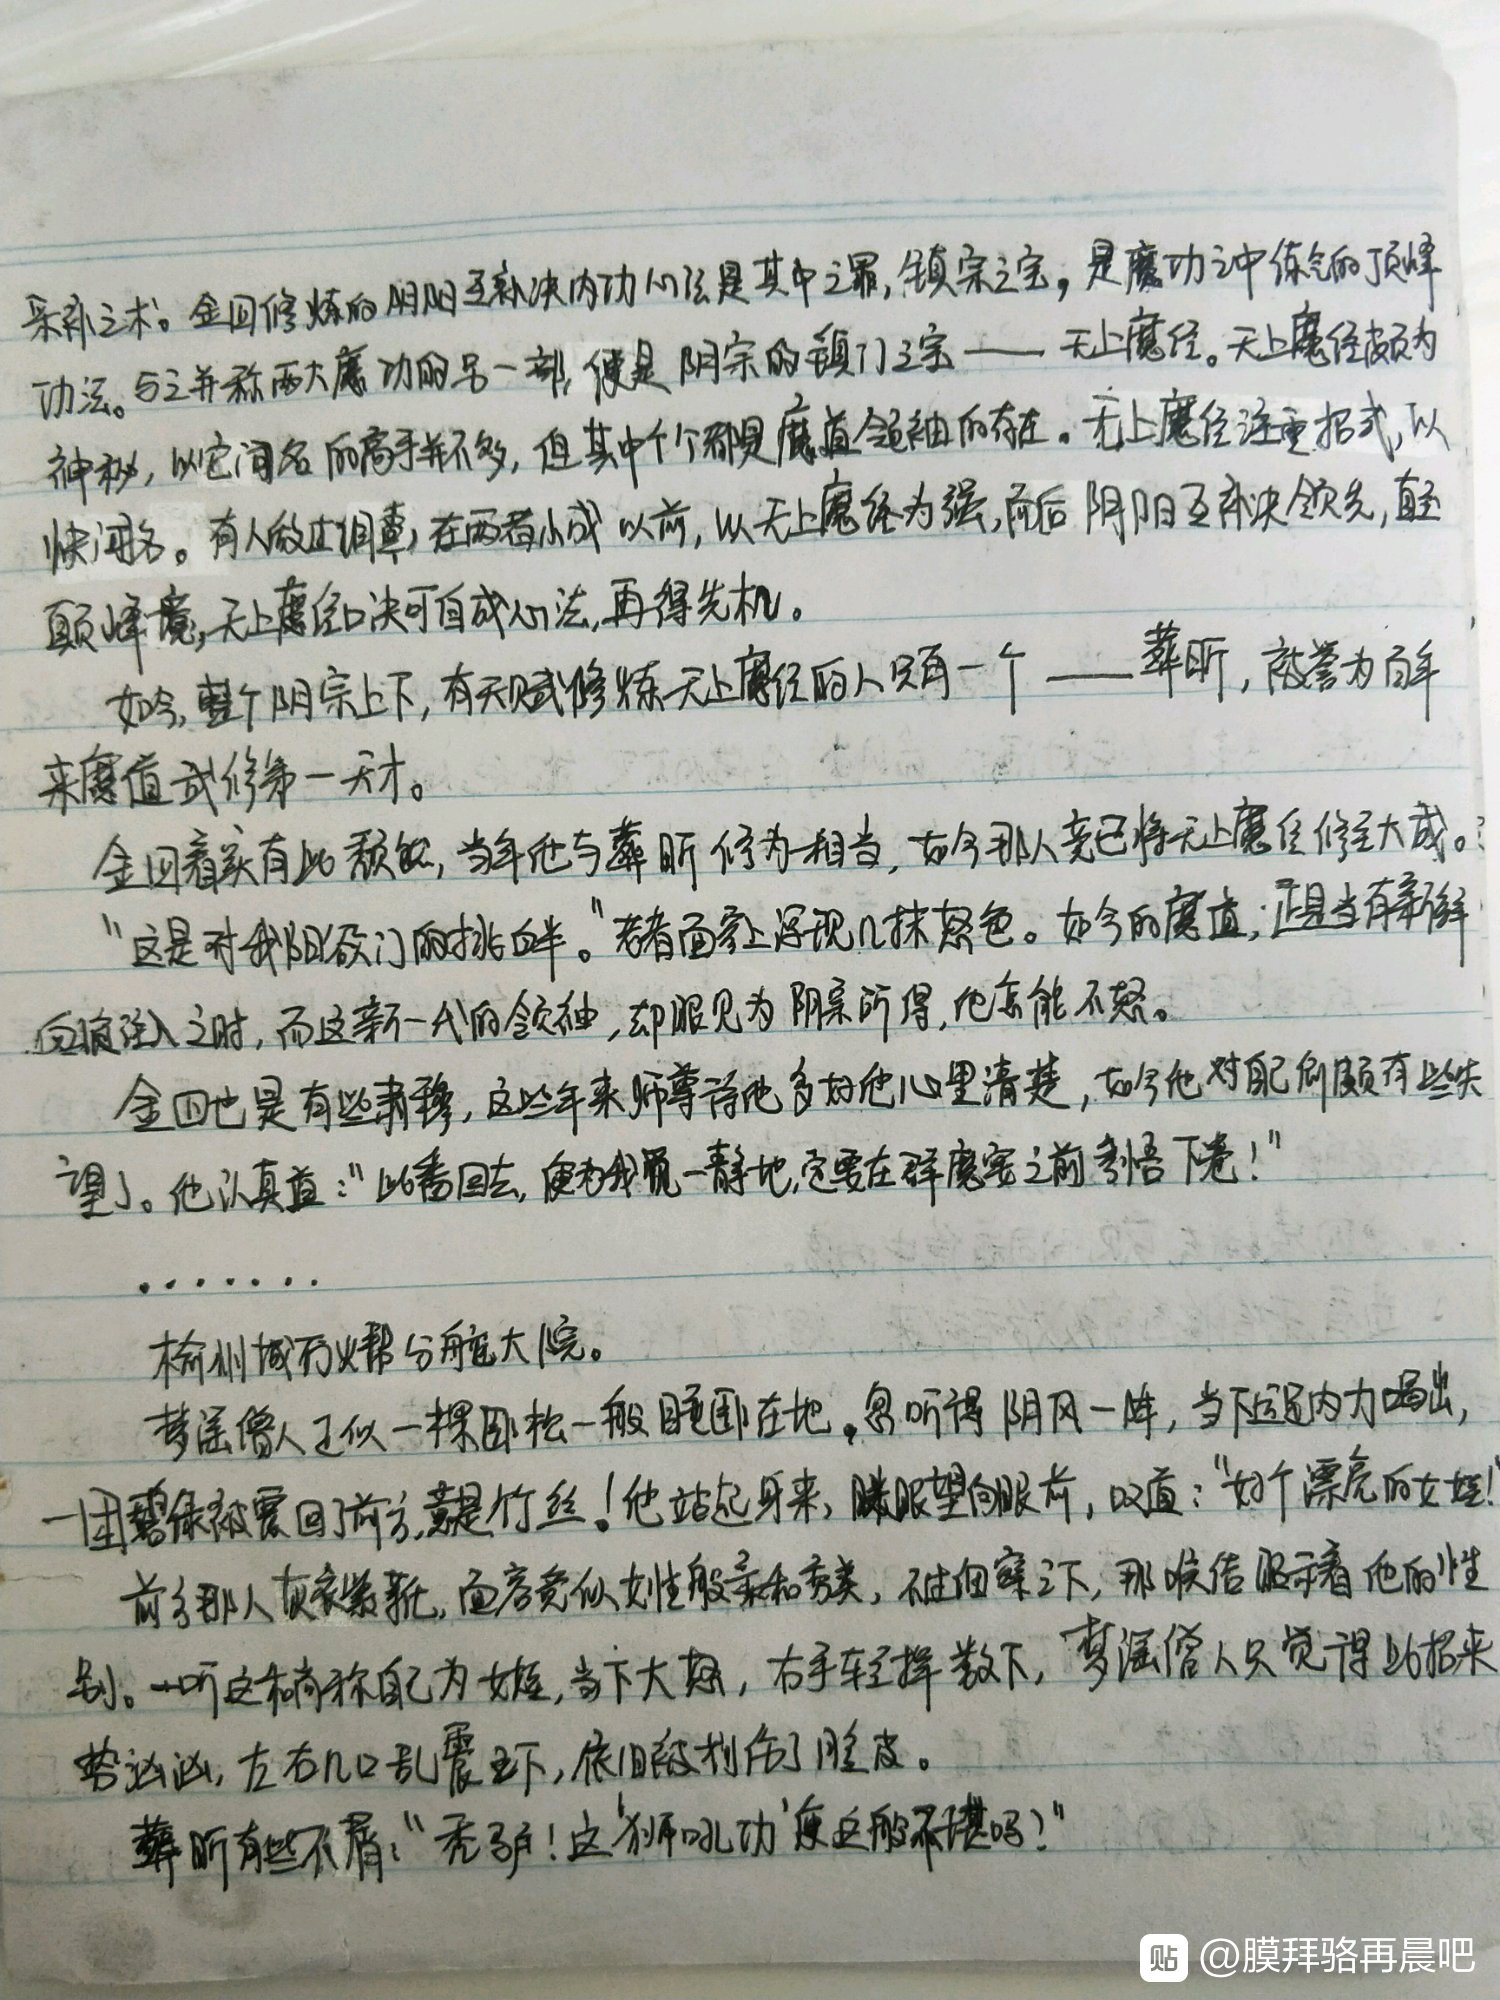 采补之术。金四修炼的阴阳互补决内功心法是其中之最,镇宗之宝,是魔功之中练气的顶峰
功法。与之并称两大魔功的另一部,便是阴宗的镇门之宝——无上魔经。无上魔经颇为
神秘,以它闻名的高手并不多,但其中个个都是魔道领袖的存在。无上魔经注重招式,以
快闻名。有人做过调查,在两者小成以前,以无上魔经为强,而后阴阳互补决领先,直至
巅峰境,无上魔经口决可自成心法,再得先机。
如今,整个阴宗上下,有天赋修炼无上魔经的人只有一个——葬昕,被誉为百年
来魔道武修第一天才。
金四着实有此颓然,当年他与葬昕修为相当,如今那人竟已将无上魔经修至大成。
“这是对我阳欲门的挑衅。”老者面容上浮现几抹怒色。如今的魔道,正是当有新鲜
血液注入之时,而这新一代的领袖,却眼见为阴宗所得,他怎能不怒。
金四也是有些肃穆,这些年来师尊待他多好他心里清楚,如今他对自己颇有些失
望了。他认真道:“此番回去,便为我觅一静地,定要在群魔宴之前参悟下卷!”
.......
榆州城万火帮分舵大院。
梦遥僧人正似一棵卧松一般睡卧在地。忽听得阴风一阵,当下运内力喝出,
一团碧绿被震回了前方,竟是竹丝!他站起身来,眯眼望向眼前,叹道:“好个漂亮的女娃!”
前方那人灰衣紫靴,面容竟似女性般柔和秀美,不过细察之下,那喉结昭示着他的性
别。一听这和尚称自己为女娃,当下大怒,右手轻挥数下,梦遥僧人只觉得此招来
势汹汹,左右几口乱震之下,依旧被划伤了脸皮。
葬昕有些不屑:“秃驴!这‘狮吼功’便这般不堪吗?”
@膜拜骆再晨吧